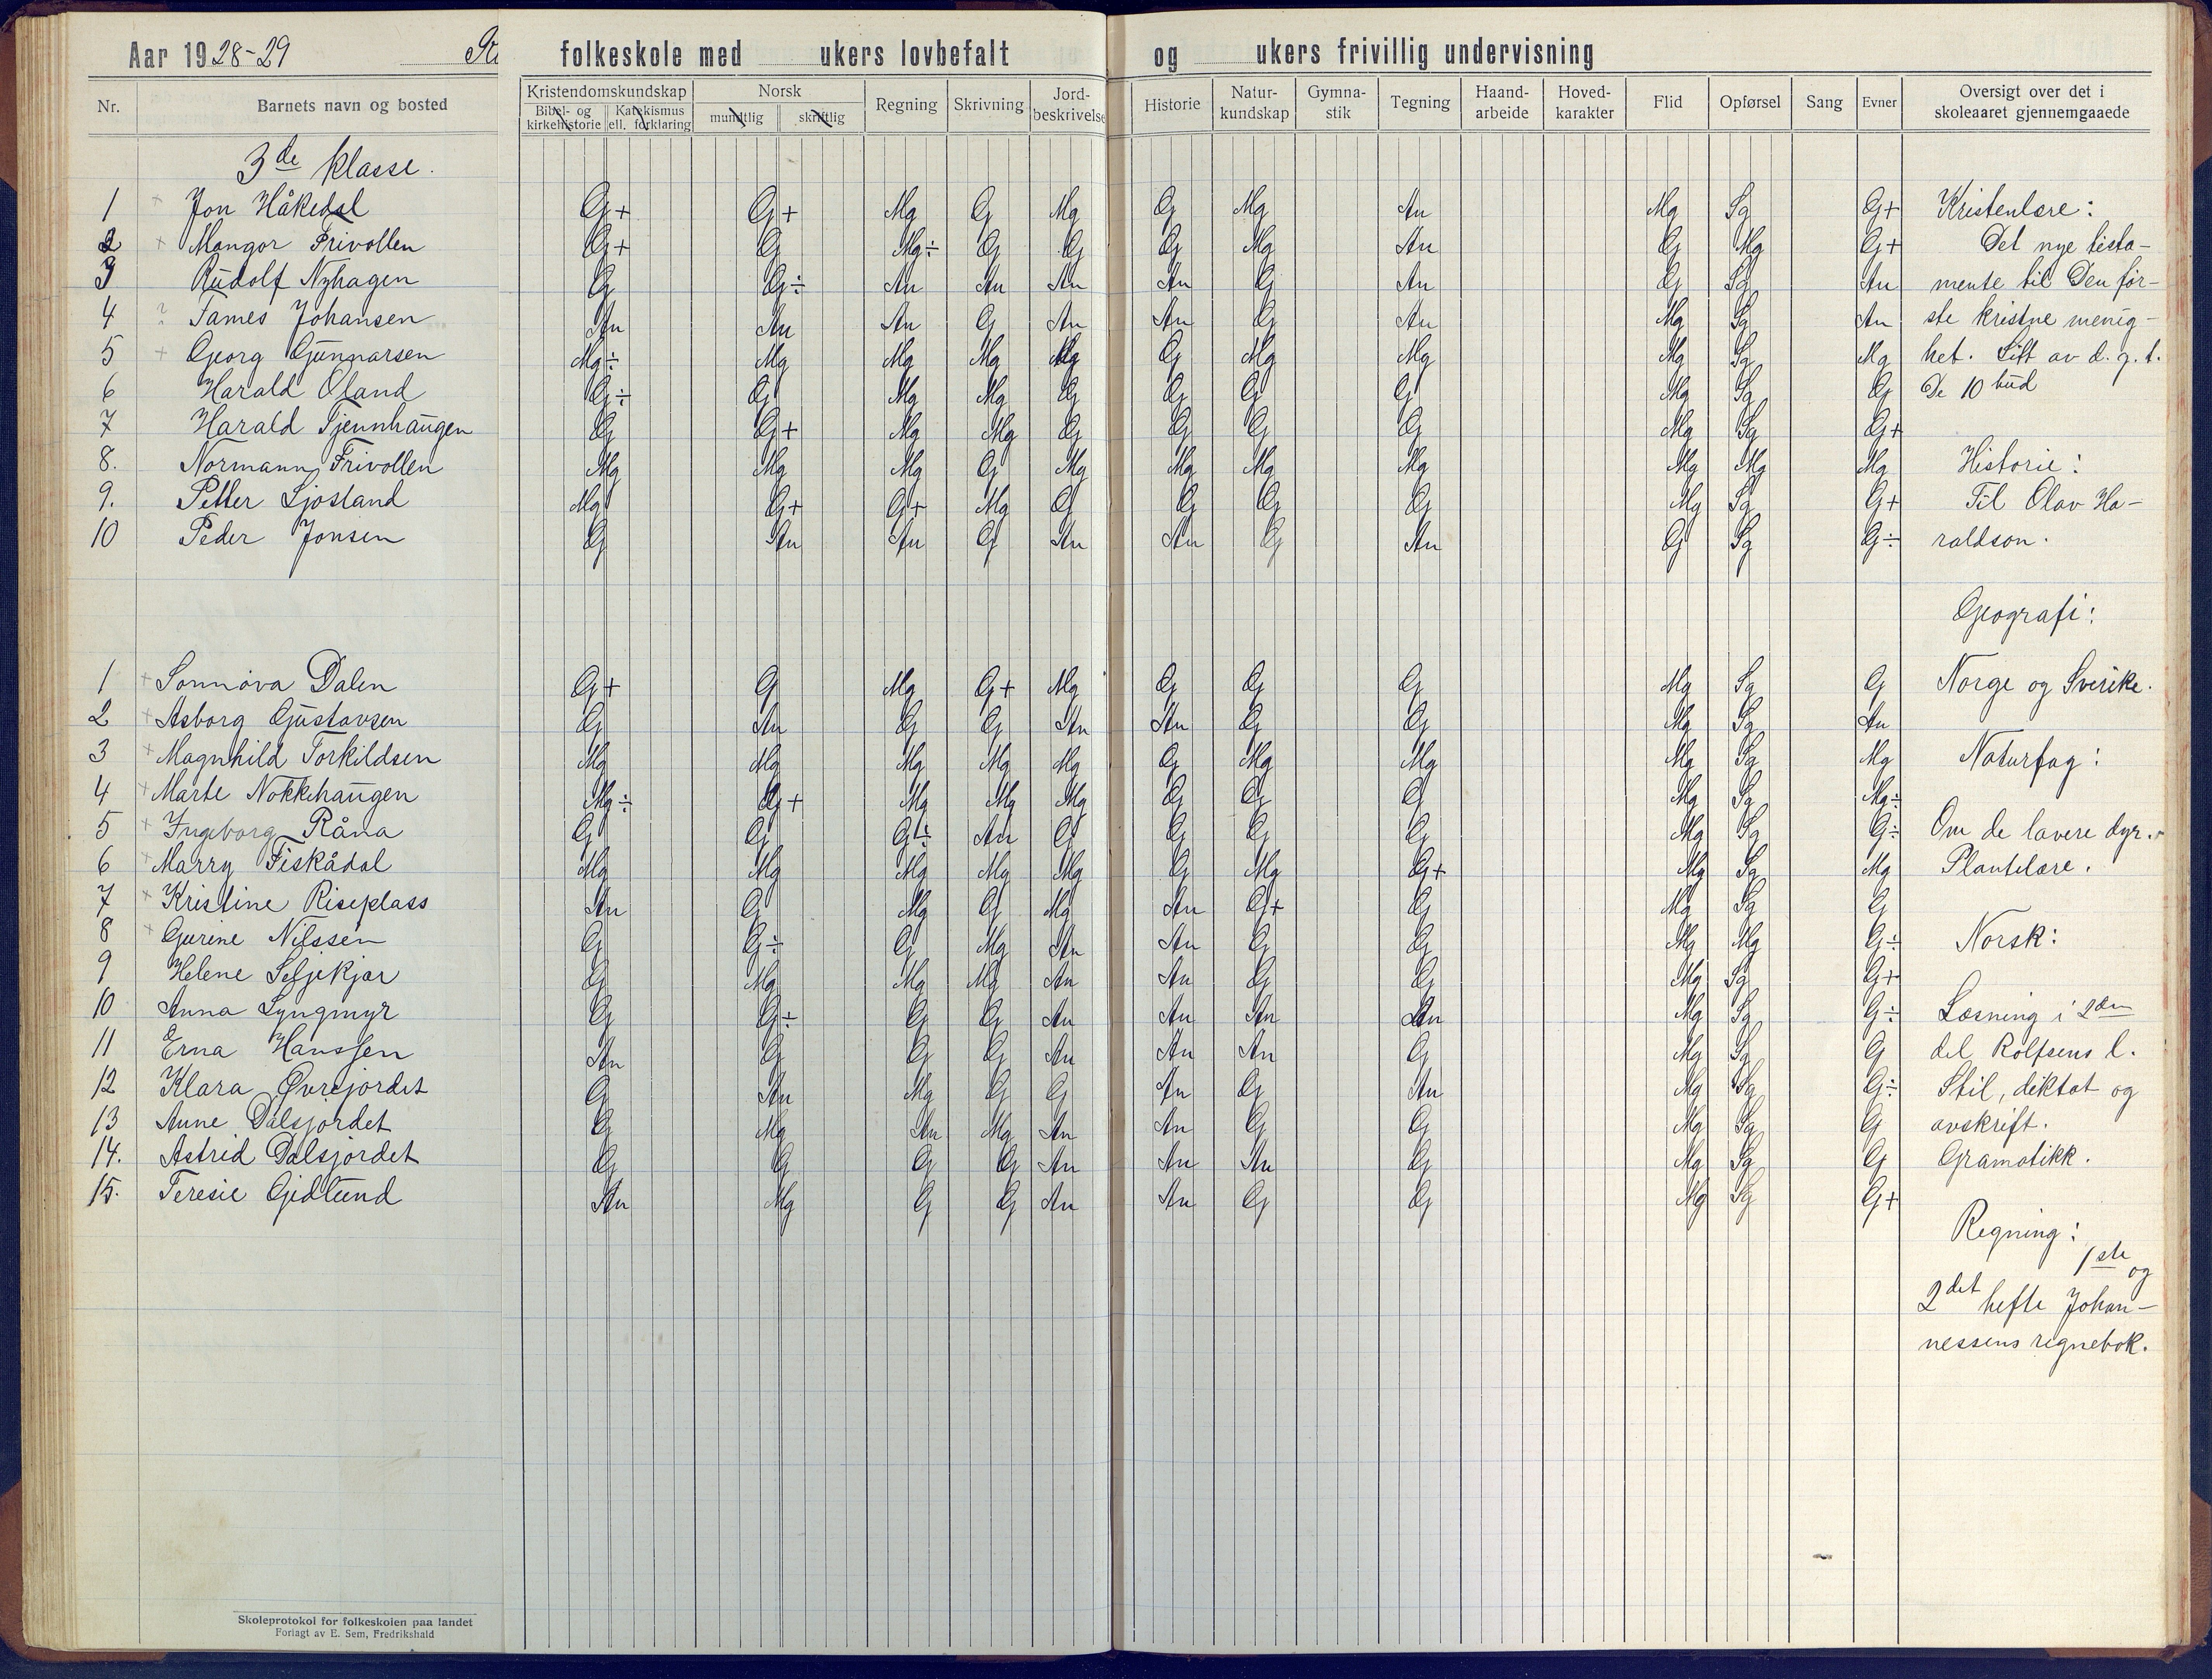 Aar 1928-29
folkeskole med ukers lovbefalt og ukers frivillig undervisning
Nr. Barnets navn og bosted Kristendomskundskap Bibel- og kirkehistorie Katekismus ell. forklaring Norsk mundtlig skriftlig Regning Skrivning Jord-beskrivelse Historie Natur-kundskap Gymna-stik Tegning Haand-arbeide Hoved-karakter Flid Opførsel Sang Evner Oversigt over det i skoleaaret gjennemgaaede
3de klasse.
1 + Jon Håkedal G+ G+ Mg G Mg G Mg An Mg Sg G+
2 + Mangor Frivollen G+ G Mg÷ G G G Mg An G Mg G+
3 Rudolf Nyhagen G G÷ An An An An G An G Sg An
4 ? James Johansen An An An G An An G An Mg Sg An
5 + Georg Gunnarsen Mg÷ Mg Mg Mg Mg G Mg Mg Mg Sg Mg
6 Harald Øland G÷ G Mg Mg G G G G Mg Sg G
7 Harald Tjennhaugen G G+ Mg Mg G G G G Mg Sg G+
8. Normann Frivollen Mg Mg Mg G Mg Mg Mg Mg Mg Mg Mg
9. Petter Sjøstand Mg G+ G+ Mg G G G G Mg Sg G+
10 Peder Jonsen G An An G An An G An G Sg G÷
1 + Sonnøva Dalen G+ G Mg G+ Mg G G G Mg Sg G
2 + Asborg Gustavsen G An G G An An G G Mg Sg An
3 + Magnhild Torkildsen Mg Mg Mg Mg Mg G Mg Mg Mg Sg Mg
4 + Marte Nokkehaugen Mg÷ G+ Mg Mg Mg G G G Mg Sg Mg÷
5 + Ingeborg Råna G G G÷ An G G G G Mg Sg G÷
6 + Marry Fiskådal Mg Mg Mg Mg Mg G Mg G+ Mg Sg Mg
7 + Kristine Riseplass An G Mg G Mg An G+ G Mg Sg G
8 + Gurine Nilssen G G÷ G Mg An An G G Mg Mg G÷
9 Helene Seljekjær G Mg Mg Mg An An G G Mg Sg G+
10 Anna Lyngmyr G G÷ G G An An An An Mg Sg G÷
11 Erna Hanssen An G G G An An An G Mg Sg G
12 Klara Øvrejordet G An Mg G G An G An Mg Sg G÷
13 Anne Dalsjordet G Mg An Mg An An G G Mg Sg G
14. Astrid Dalsjordet G G G G An An An G Mg Sg G
15. Teresie Gjedlund An Mg G G An An G G Mg Sg G+
Kristenlære:
Det nye testa-
mente til Den før-
ste kristne menig-
het. Litt av d. g. t.
De 10 bud
Historie:
Til Olav Ha-
raldson.
Geografi:
Norge og Sverike.
Naturfag:
Om de lavere dyr.
Plantelære.
Norsk:
Læsning i 2den
del Rolfsens l.
Stil, diktat og
avskrift.
Gramatikk.
Regning:
1ste og
2det hefte Johan-
nessens regnebok.
Skoleprotokol for folkeskolen paa landet
Forlagt av E. Sem, Fredrikshald